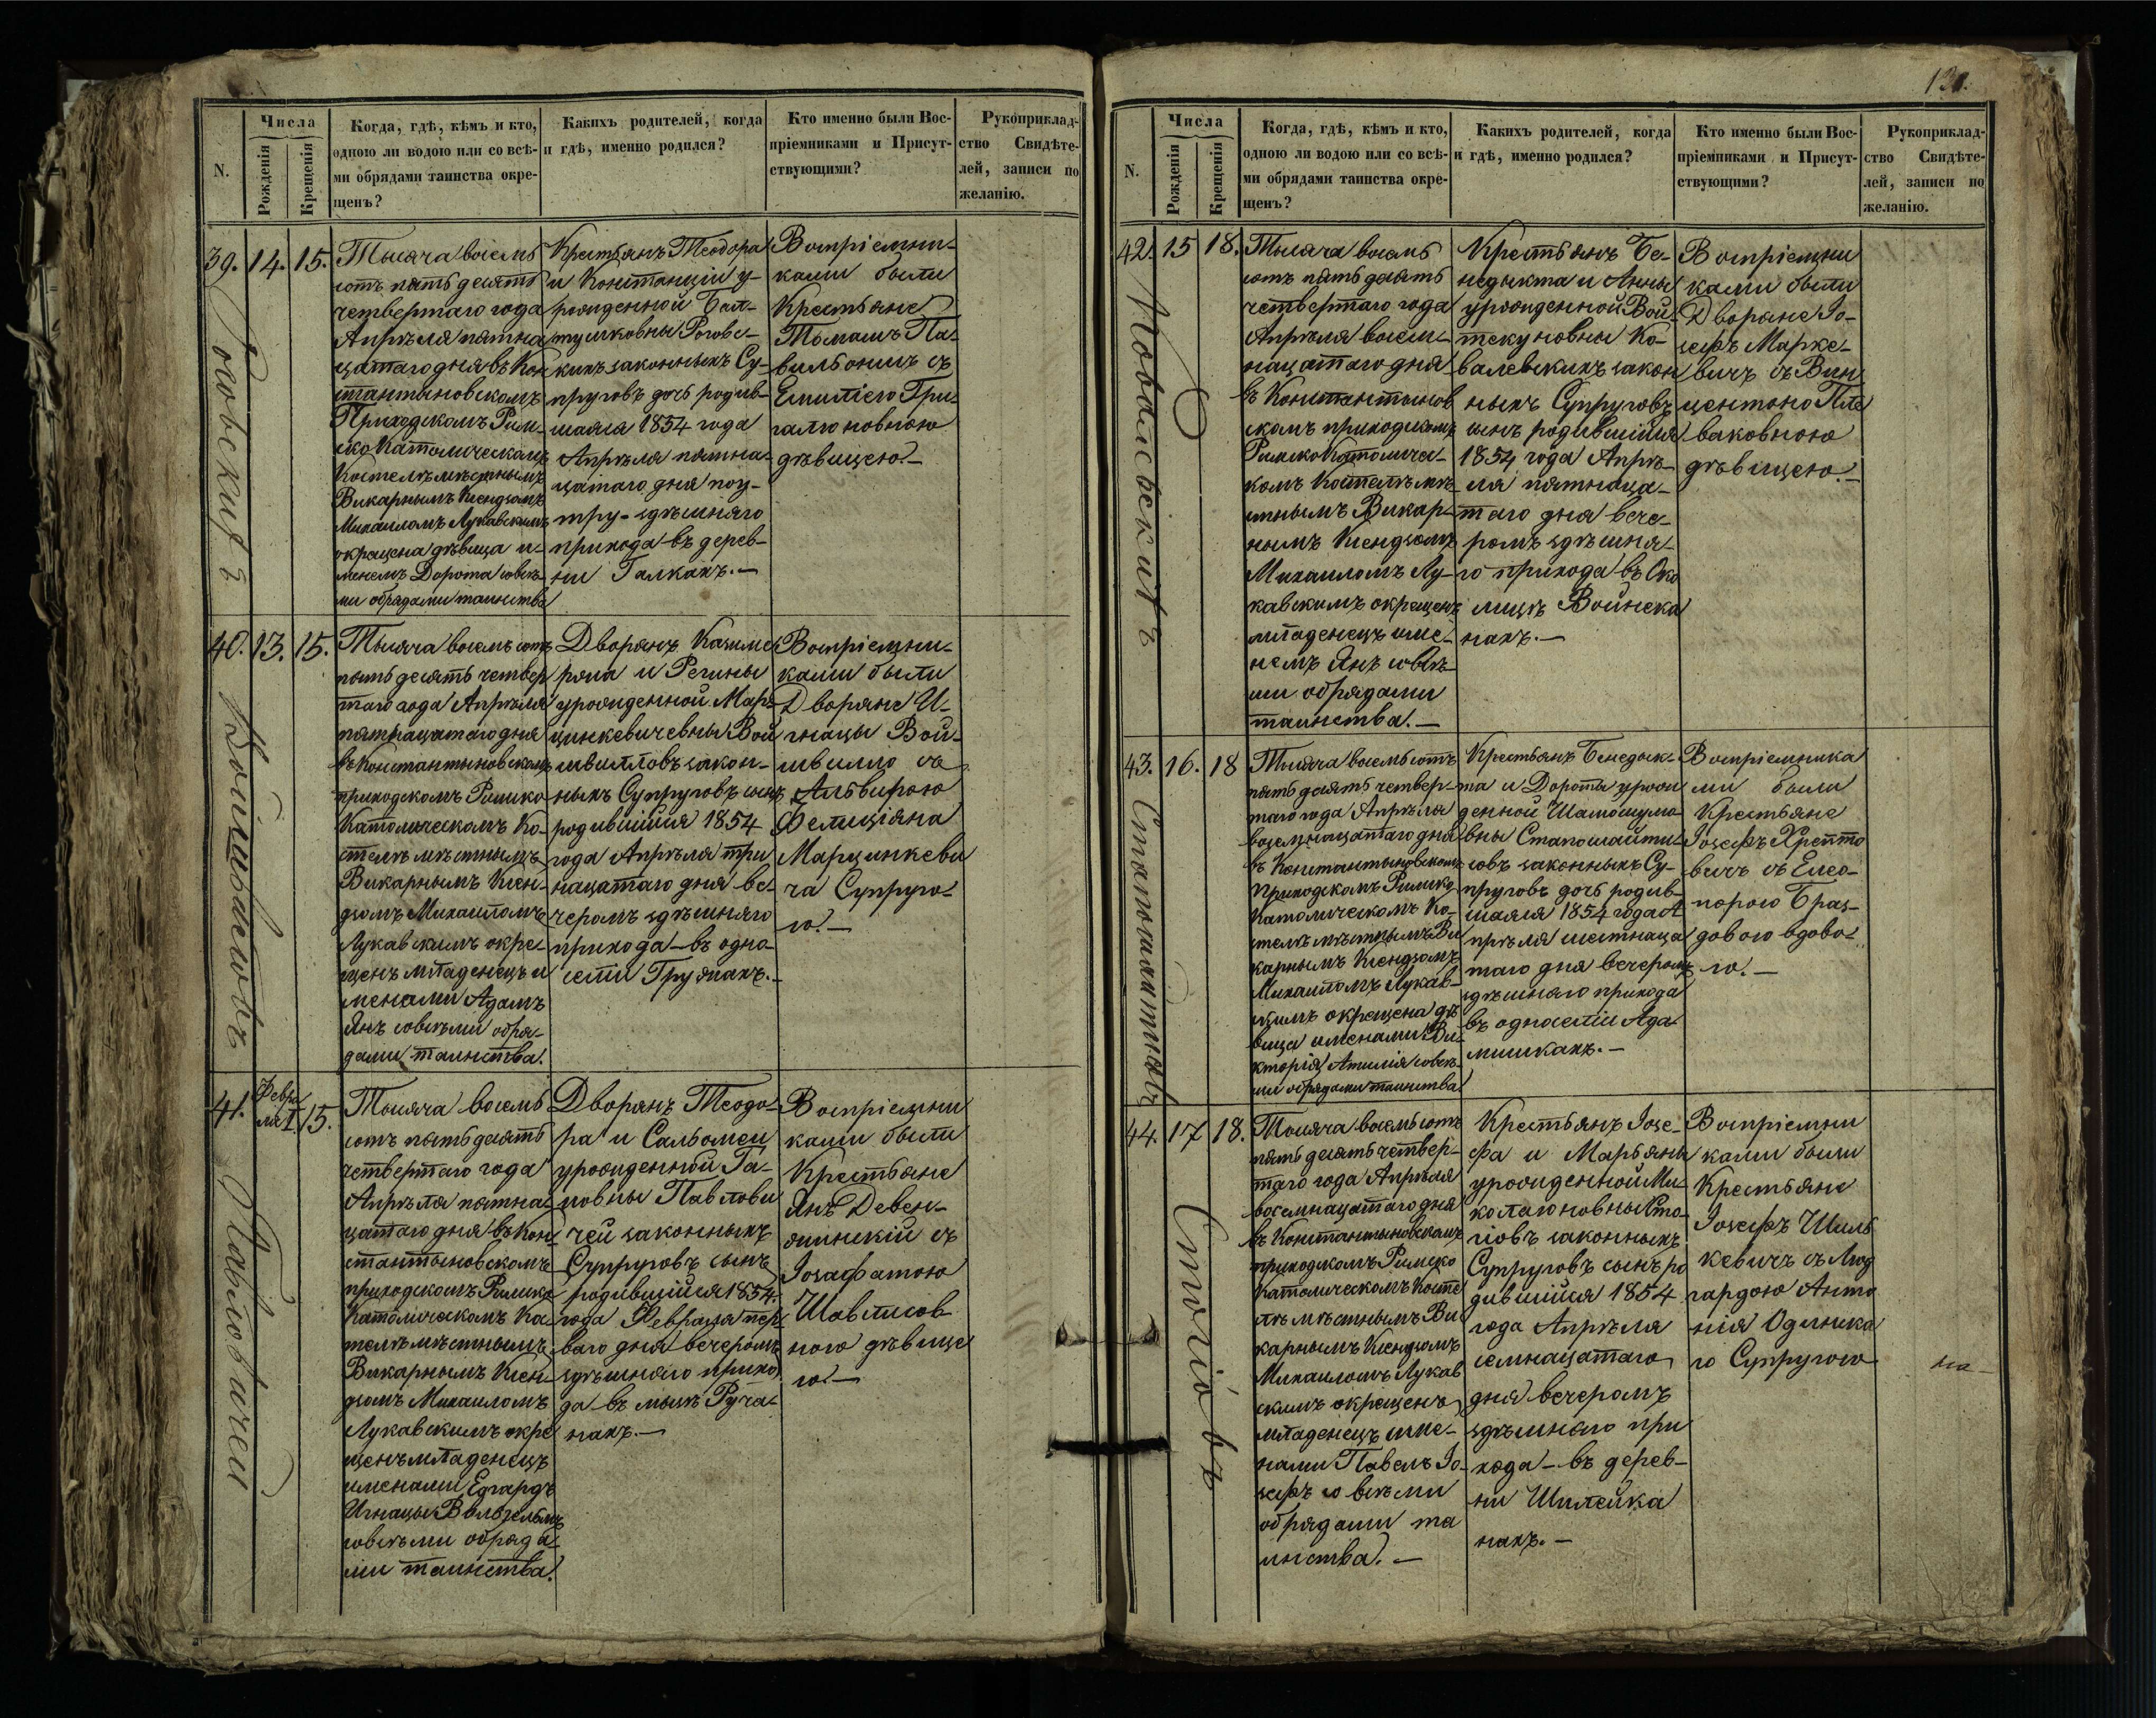 N.
Числа
Рожденія
Крещенія
Когда, гдѣ, кѣмъ и кто,
одною ли водою или со всѣ-
ми обрядами таинства окре-
щенъ?
Какихъ родителей, когда
и гдѣ, именно родился?
Кто именно были Вос-
пріемниками и Присут-
ствующими?
Рукоприклад-
ство Свидѣте-
лей, записи по
желанію.
39.
14.
15.
Тысяча восемь
сотъ пять десятъ
четвертаго года
Апрѣля пятна
цатаго дня въ Кон
стантыновскомъ
Приходскомъ Рим-
ско Католическомъ
Костелѣ мѣстнымъ
Викарнымъ Ксендзомъ
Михаиломъ Лукавскимъ
окрещена дѣвица и-
менемъ Дорота совсѣ-
ми обрядами таинства
Крестьянъ Теодора
и Констанціи у-
рожденной Бал-
Роговс-
кихъ законныхъ Су-
пруговъ дочь родив-
шаяся 1854 года
Апрѣля пятна-
цатаго дня поу-
тру - здѣшняго
прихода въ дерев-
ни Галкахъ. —
Воспріемни-
ками были
Крестьяне
Томашъ Па-
вильонисъ съ
Емиліею Гри-
галюновною
дѣвицею. —
40.
13.
15.
Войшвилловъ
Тысяча восемь сотъ
пять десять четвер
таго года Апрѣля
пятнацатаго дня
въ Константыновскомъ
приходскомъ Римско
Католическомъ Ко-
стелѣ мѣстнымъ
Викарнымъ Ксен-
дзомъ Михаиломъ
Лукавскимъ окре-
щенъ младенецъ и
менами Адамъ
Янъ совсѣми обря-
дами таинства.
Дворянъ Казиме
ржа и Регины
урожденной Мар-
цинкевичевны Вой
швилловъ закон-
ныхъ Супруговъ сынъ
родившійся 1854
года Апрѣля три
нацатаго дня ве-
черомъ здѣшняго
прихода - въ одно
селіи Гружахъ. —
Воспріемни-
ками были
Дворяне И-
гнацы Вой-
швилло съ
Альвирою
Фелиціяна
Марцинкеви
ча Супруго-
ю. —
41.
Февра
ля 1.
15.
Павловичей
Тысяча восемь
сотъ пять десять
четвертаго года
Апрѣля пятна-
цатаго дня въ Кон-
стантыновскомъ
приходскомъ Римско
Католическомъ Ко-
стелѣ мѣстнымъ
Викарнымъ Ксен-
дзомъ Михаиломъ
Лукавскимъ окре
щенъ младенецъ
именами Едгардъ
Игнацы
совсѣми обряда-
ми таинства.
Дворянъ Теодо-
ра и Сальомеи
урожденной Га-
новны Павлови
чей законныхъ
Супруговъ сынъ
родившійся 1854
года Февраля пер-
ваго дня вечеромъ
здѣшняго прихо
да въ мызѣ Руча-
нахъ. —
Воспріемни
ками были
Крестьяне
Янъ Девен-
съ
Іозафатою
Шавлисов
ною дѣвице
ю. —
131.
N.
Числа
Рожденія
Крещенія
Когда, гдѣ, кѣмъ и кто,
одною ли водою или со всѣ-
ми обрядами таинства окре-
щенъ?
Какихъ родителей, когда
и гдѣ, именно родился?
Кто именно были Вос-
пріемниками и Присут-
ствующими?
Рукоприклад-
ство Свидѣте-
лей, записи по
желанію.
42.
15
18.
Ковалевскихъ
Тысяча восемь
сотъ пять десять
четвертаго года
Апрѣля восем-
нацатаго дня
въ Константынов
скомъ приходскомъ
Римско Католичес-
комъ Костелѣ мѣ-
стнымъ Викар-
нымъ Ксендзомъ
Михаиломъ Лу-
кавскимъ окрещенъ
младенецъ име-
немъ Янъ совсѣ-
ми обрядами
таинства. —
Крестьянъ Бе-
недыкта и Анны
урожденной Вой-
ткуновны Ко-
валевскихъ закон
ныхъ Супруговъ
сынъ родившійся
1854 года Апрѣ-
ля пятнаца-
таго дня вече-
ромъ здѣшня-
го прихода въ Око
лицѣ Войнека
нахъ. —
Воспріемни
ками были
Дворяне Іо-
зефъ Марке-
вичъ съ Вин
центою Пле
ваковною
дѣвицею. —
43.
16.
18
Тысяча восемь сотъ
пять десятъ четвер-
таго года Апрѣля
восемнацатаго дня
въ Константыновскомъ
Приходскомъ Римско
Католическомъ Ко-
стелѣ мѣстнымъ Ви
карнымъ Ксендзомъ
Михаиломъ Лукав-
скимъ окрещена дѣ
вица именами Ви-
кторія Амилія совсѣ-
ми обрядами таинства
Крестьянъ Бенедык-
та и Дороты урож
денной
законныхъ Су-
пруговъ дочь родив-
шаяся 1854 года А
прѣля шестнаца
таго дня вечеромъ
здѣшняго прихода
въ односеліи Ада-
мишкахъ. —
Воспріемника
ми были
Крестьяне
Іозефъ Хрепто
вичъ съ Елео-
норою Браз-
довою вдово-
ю. —
44.
17
18.
Стогіовъ
Тысяча восемь сотъ
пять десять четвер-
таго года Апрѣля
восемнацатаго дня
въ Константыновскомъ
приходскомъ Римско
Католическомъ Косте
лѣ мѣстнымъ Ви
карнымъ Ксендзомъ
Михаиломъ Лукав
скимъ окрещенъ
младенецъ име-
нами Павелъ Іо-
зефъ со всѣми
обрядами та
инства. —
Крестьянъ Іозе-
фа и Марьяны
урожденной Ми-
колаюновны Сто-
гіовъ законныхъ
Супруговъ сынъ ро
дившійся 1854
года Апрѣля
семнацатаго
дня вечеромъ
здѣшняго при
хода - въ дерев-
ни Шилейка
нахъ. —
Воспріемни
ками были
Крестьяне
Іозефъ Шиль
кевичъ съ Люд
гардою Анто
нія Одинка
го Супругою